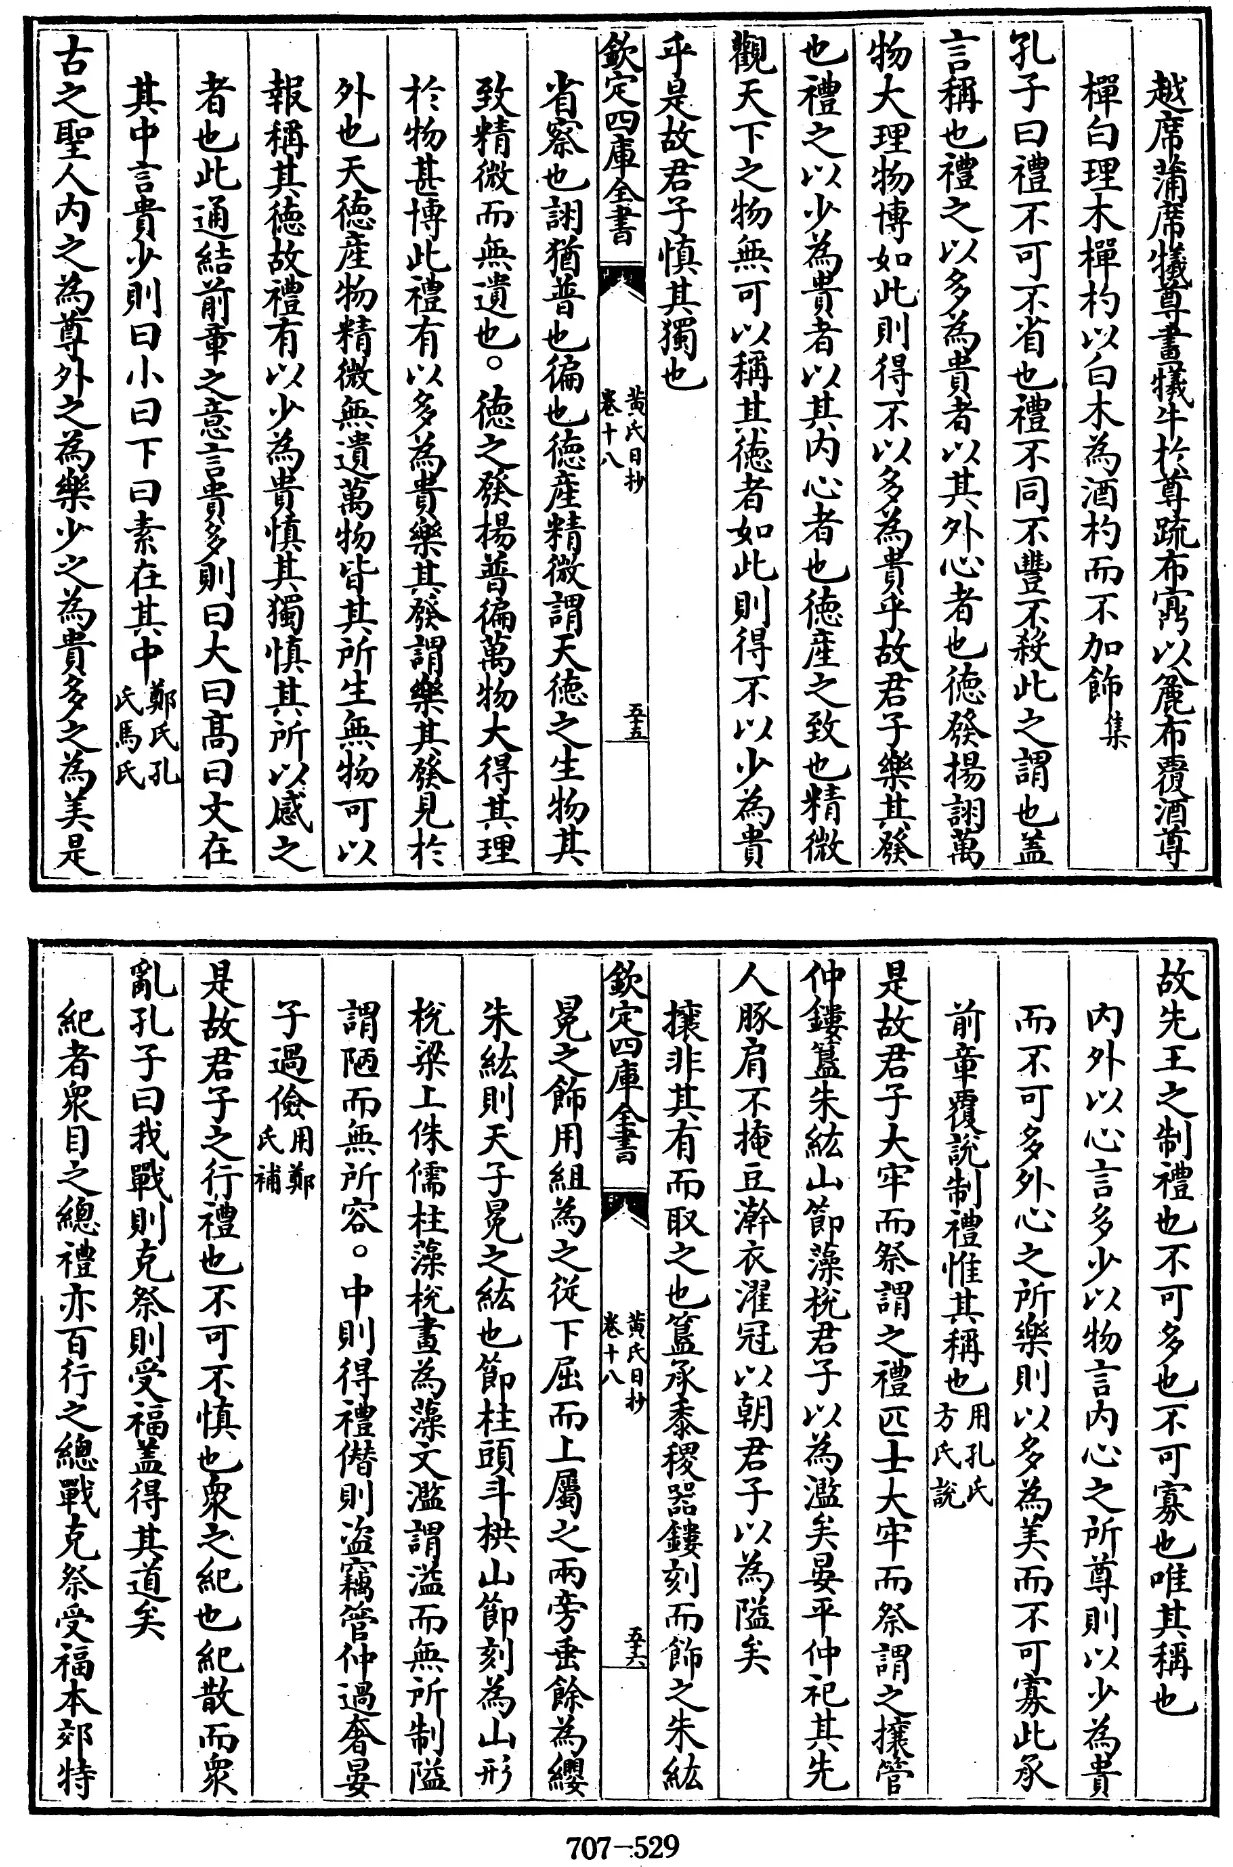 越席蒲席犧尊畫犧牛於尊疏布鼏以麄布覆酒尊
樿白理木樿杓以白木為酒杓而不加飾集
孔子曰禮不可不省也禮不同不豐不殺此之謂也盖
言稱也禮之以多為貴者以其外心者也徳發揚詡萬
物大理物博如此則得不以多為貴乎故君子樂其發
也禮之以少為貴者以其内心者也徳産之致也精微
觀天下之物無可以稱其徳者如此則得不以少為貴
乎是故君子慎其獨也
欽定四庫全書
黄氏日抄
卷十八
五十五
省察也詡猶普也徧也徳産精微謂天徳之生物其
致精微而無遺也。徳之發揚普徧萬物大得其理
於物甚博此禮有以多為貴樂其發謂樂其發見於
外也天徳産物精微無遺萬物皆其所生無物可以
報稱其徳故禮有以少為貴慎其獨慎其所以感之
者也此通結前章之意言貴多則曰大曰髙曰文在
其中言貴少則曰小曰下曰素在其中鄭氏孔
氏馬氏
古之聖人内之為尊外之為樂少之為貴多之為美是
故先王之制禮也不可多也不可寡也唯其稱也
内外以心言多少以物言内心之所尊則以少為貴
而不可多外心之所樂則以多為美而不可寡此承
前章覆說制禮惟其稱也用孔氏
方氏說
是故君子大牢而祭謂之禮匹士大牢而祭謂之攘管
仲鏤簋朱紘山節藻梲君子以為濫矣晏平仲祀其先
人豚肩不掩豆澣衣濯冠以朝君子以為隘矣
攘非其有而取之也簋承黍稷器鏤刻而飾之朱紘
欽定四庫全書
黄氏日抄
卷十八
五十六
冕之飾用組為之從下屈而上屬之兩旁垂餘為纓
朱紘則天子冕之紘也節柱頭斗栱山節刻為山形
梲梁上侏儒柱藻梲畫為藻文濫謂溢而無所制隘
謂陋而無所容。中則得禮僣則盗竊管仲過奢晏
子過儉用鄭
氏補
是故君子之行禮也不可不慎也衆之紀也紀散而衆
亂孔子曰我戰則克祭則受福盖得其道矣
紀者衆目之總禮亦百行之總戰克祭受福本郊特
707-529